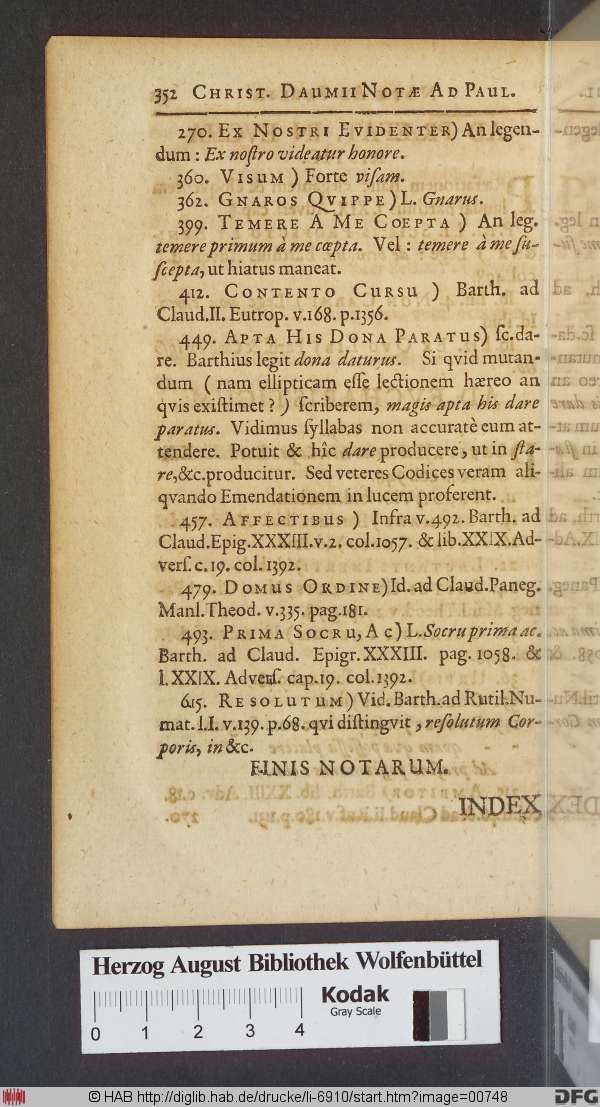 352 CHRIST. DAUMII NOTÆ AD PAUL.
270. EX NOSTRI EVIDENTER) An legen-
dum: Ex noſtro videatur honore.
360. VISUM) Forte viſam.
362. GNAROS QVIPPE) L. Gnarus.
399. TEMERE A ME COEPTA) An leg.
temere primum à me cœpta. Vel: temere à me ſu-
ſcepta, ut hiatus maneat.
412. CONTENTO CURSU) Barth. ad
Claud.II. Eutrop. v.168. p.1356.
449. APTA HIS DONA PARATUS) ſc.da-
re. Barthius legit dona daturus. Si qvid mutan-
dum (nam ellipticam eſſe lectionem hæreo an
qvis exiſtimet?) ſcriberem, magis apta his dare
paratus. Vidimus ſyllabas non accuratè eum at-
tendere. Potuit & hîc dare producere, ut in ſta-
re,&c.producitur. Sed veteres Codices veram ali-
qvando Emendationem in lucem proferent.
457. AFFECTIBUS) Infra v.492. Barth. ad
Claud.Epig.XXXIII.v.2. col.1057. & lib.XXIX.Ad-
verſ. c.19. col.1392.
479. DOMUS ORDINE) Id. ad Claud.Paneg.
Manl.Theod. v.335. pag.181.
493. PRIMA SOCRU, AC) L. Socru prima ac.
Barth. ad Claud. Epigr.XXXIII. pag.1058. &
l.XXIX. Adverſ. cap.19. col.1392.
615. RESOLUTUM) Vid. Barth.ad Rutil.Nu-
mat. l.I. v.139. p.68. qvi diſtingvit, reſolutum Cor-
poris, in &c.
FINIS NOTARUM.
INDEX
Herzog August Bibliothek Wolfenbüttel
Kodak
Gray Scale
0 1 2 3 4
© HAB http://diglib.hab.de/drucke/li-6910/start.htm?image=00748
DFG